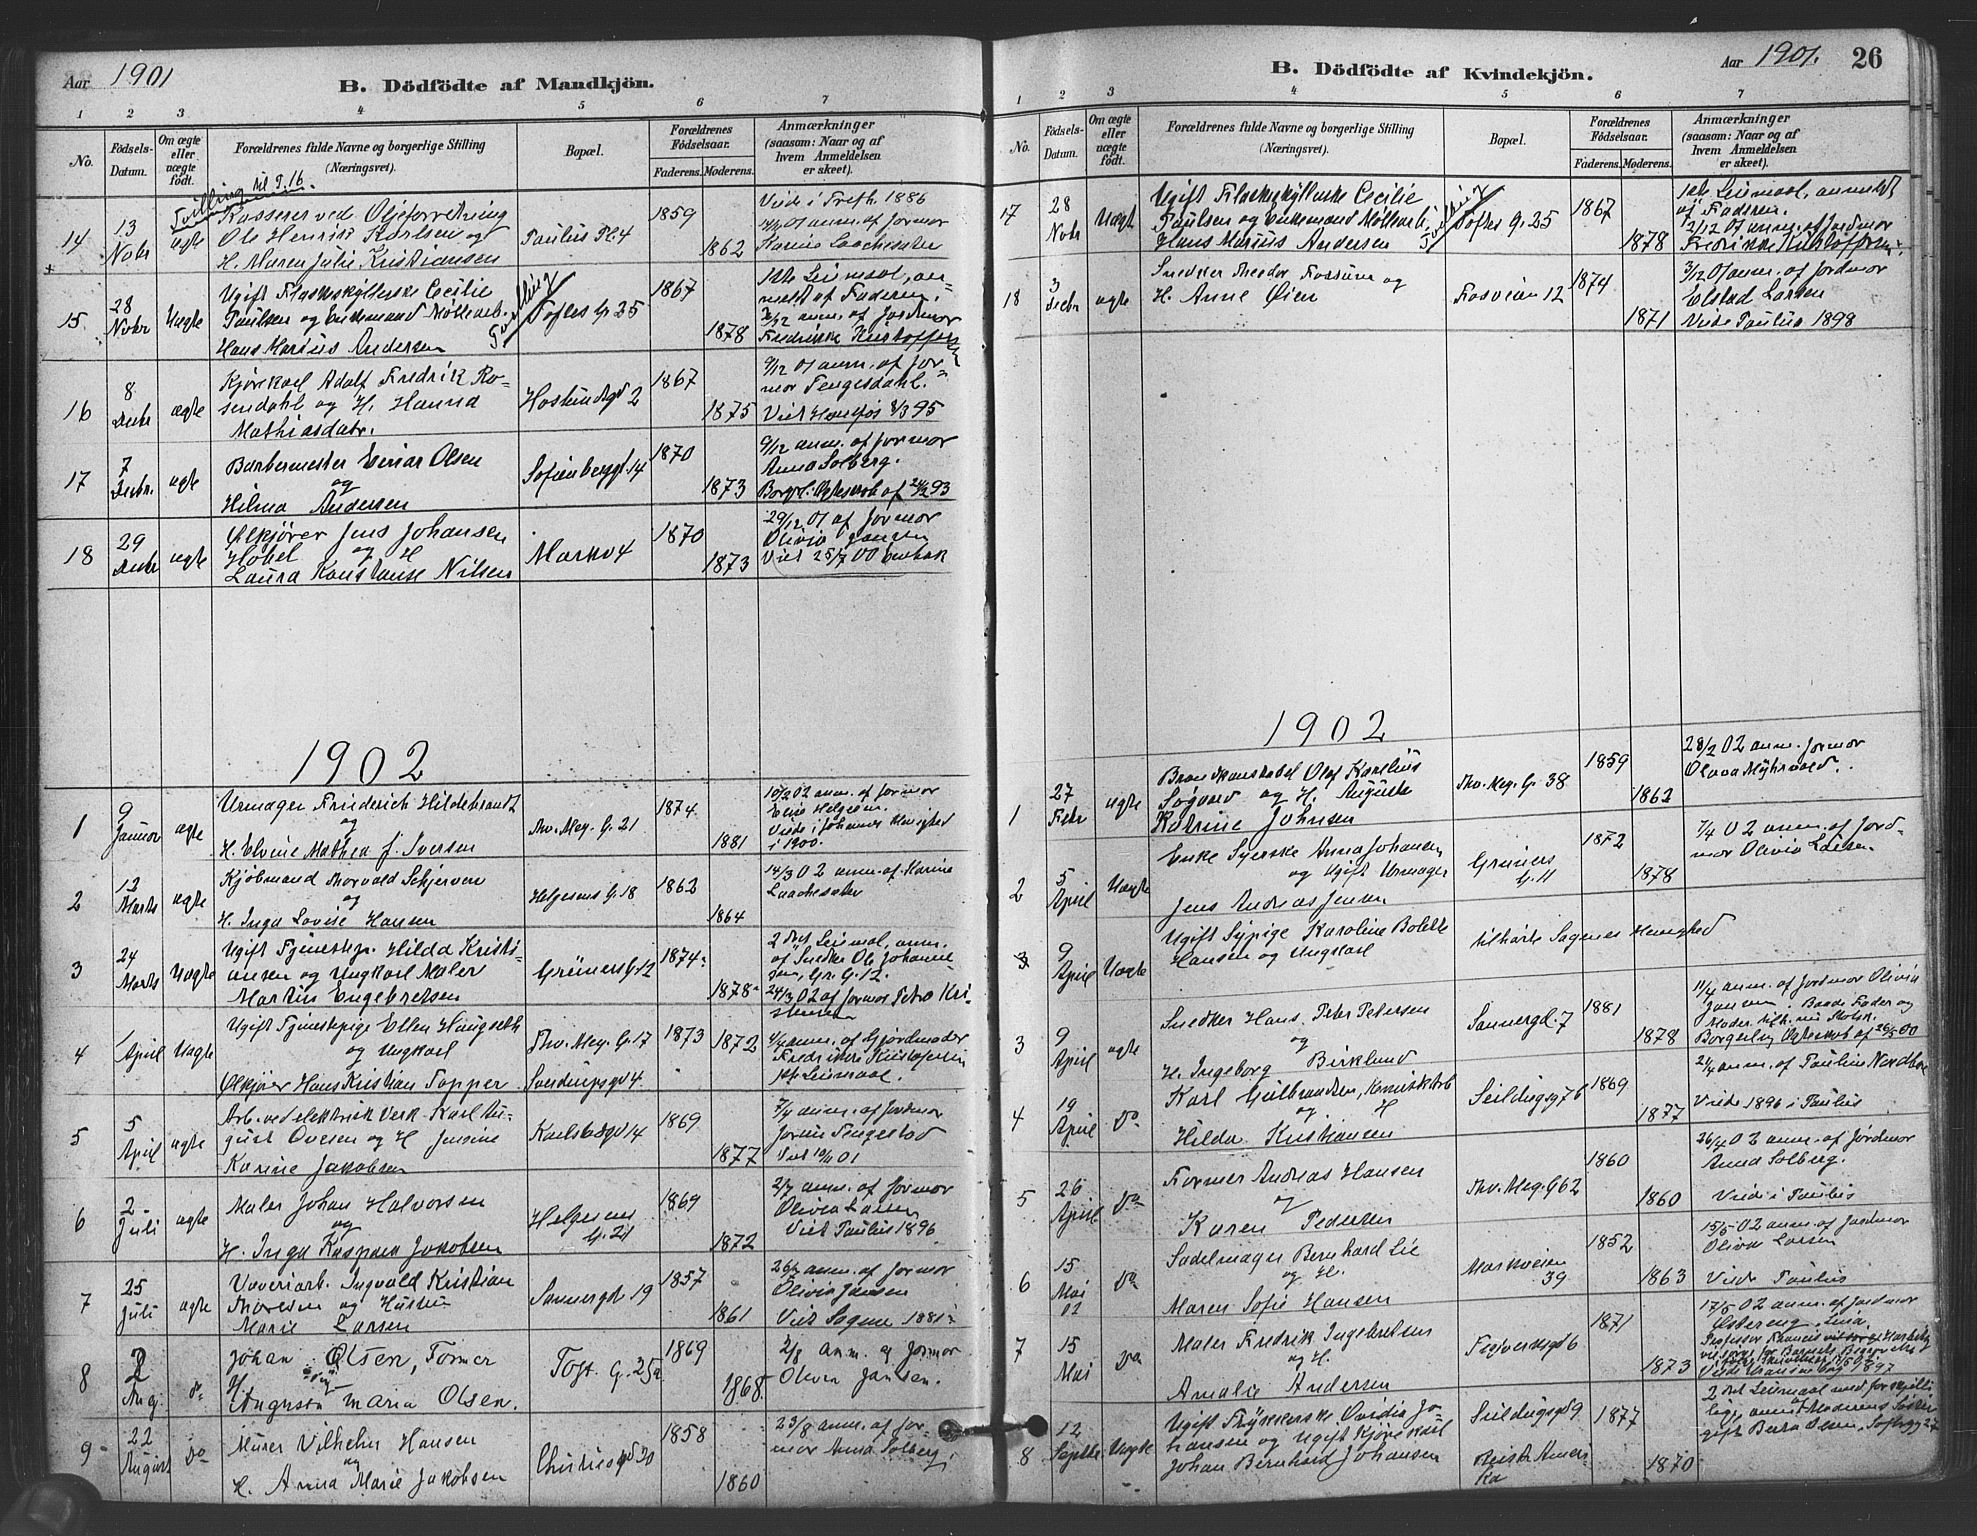 Aar 1901
B. Dödfödte af Mandkjön.
1 2 3 4 5 6 7
No.
Födsels-Datum.
Om ægte eller uægte födt.
Forældrenes fulde Navne og borgerlige Stilling
(Næringsvei).
Bopæl.
Forældrenes Födselsaar.
Faderens. Moderens.
Anmærkninger
(saasom: Naar og af
hvem Anmeldelsen
er skeet).
Tvilling til P. 16.
14 13 Novbr ægte
Kasserer ved Oljeforretning
Ole Henrik Karlsen og
H. Maren Julie Kristiansen
Paulus Pl. 4
1859
1862
Viede i 1886
anm. af Jormor
15 28 Novbr Uægte
Ugift Flaskeskyllerske Cecilie
Paulsen og Enkemand Møllearb.
Hans Marius Andersen
Tvilling
Toftes G. 25
1867
1878
1ste Leiermaal, an-
meldt af Faderen.
2/12 anm. af Jordmor
Fredrikke Kristoffersen
16 8 Decbr ægte
Kjørekarl Adolf Fredrik Ro-
sendahl og H. Hanna
Mathiasdatr.
2
1867
1875
9/12 01 anm. af Jor-
mor Tengesdahl.
Viet Hønefos 3/3 95
17 7 Decbr. ægte
Barbermester Einar Olsen
og
Hilma Andersen
Sofienbergg. 14
1870
1873
9/12 anm. af Jormor
Anna Solberg.
Borgerl. Ægteskab af 24/2 93
18 29 Decbr ægte
Ølkjører Jens Johansen
Hobel og H
Laura Konstanse Nilsen
Markv 4
1870
1873
29/12 01 af Jormor
Olivia Jansen
Viet 25/7 00
1902
1 9 Januar ægte
Urmager Friederich Hildebrandt
og
H. Elvine Mathea f. Iversen
Thv. Mey. G. 21
1874
1881
10/2 02 anm. af Jormor
Elise Helgesen.
Viede i Johannes Menighed
i 1900.
2 12 Marts ægte
Kjøbmand Thorvald Schjerven
og
H. Inga Lovise Hansen
Helgesens G. 18
1862
1864
14/3 02 anm. af Karine
3 24 Marts Uægte
Ugift Tjenestepi. Hilda Kristi-
ansen og Ungkarl Maler
Martin Engebretsen
Grüners G. 12
1874
1878
2det Leiermaal, anm.
af Snedker Ole Johanne-
sen, Gr. G. 12.
24/3 02 af Jormor Petra Kri-
stensen
4 April Uægte
Ugift Tjenestepige Ellen Haugseth
og Ungkarl
Ølkjører Hans Kristian Topper
Thv. Mey. G. 17
1873 1872
4/4 anm. af Gjordmoder
Fredrikke Kristoffersen
1st Leiermaal.
5 5 April ægte
Arb. ved elektrisk Verk. Karl Au-
gust Ovesen og H Jensine
Karine Jakobsen
Karlsborgd 14
1869
1877
7/4 anm. af Jordmor
Viet 10/11 01
6 2 Juli ægte
Maler Johan Halvorsen
og
H. Inga Jakobsen
Helgesens
G. 21
1869
1872
2/7 anm. af Jormor
Olivia Larsen
Viet Paulus 1896
7 25 Juli ægte
Væveriarb. Ingvald Kristian
Thoresen og Hustru
Marie Larsen
Sannergd 19
1857
1861
26/7 anm. af Jormor
Olivia Jansen
Viet Sagene 1881
8 2 Aug. do
Johan Olsen, Former
H
Augusta Maria Olsen.
Toft. G. 25a
1869
1868
2/8 anm. af Jormor
Olivia Jansen.
9 22 August do
Murer Vilhelm Hansen
og
H. Anna Marie Jakobsen
Christiesgd 30
1858
1860
23/8 anm. af Jor-
mor Anna Solberg
Aar 1901. 26
B. Dödfödte af Kvindekjön.
1 2 3 4 5 6 7
No.
Födsels-Datum.
Om ægte eller uægte födt.
Forældrenes fulde Navne og borgerlige Stilling
(Næringsvei).
Bopæl.
Forældrenes Födselsaar.
Faderens. Moderens.
Anmærkninger
(saasom: Naar og af
hvem Anmeldelsen
er skeet).
17 28 Novbr Uægte
Ugift Flaskeskyllerske Cecilie
Paulsen og Enkemand Møllearb.
Hans Marius Andersen
Tvilling
Toftes G. 25
1867
1878
1ste Leiermaal, anmeldt
af Faderen.
2/12 01 anm. af Jordmor
Fredrikke Kristoffersen.
18 3 Decbr ægte
Snedker Theodor Fossum og
H. Anne Øien
Fosveien 12
1874
1871
3/12 01 anm. af Jordmor
Elstad Larsen
Viede Paulus 1898
1902
1 27 Febr ægte
Brandkonstabel Olaf Karelius
Søgvard og H. Augusta
Katrine Johnsen
Thv. Mey. G. 38
1859
1862
28/2 02 anm. Jormor
Olava Myhrvold.
2 5 April Uægte
Enke Syerske Anna Johansen
og Ugift Urmager
Jens Andreas Jensen
Grüners
G. 11
1872
1878
7/4 02 anm. af Jord-
mor Olivia Larsen
3 9 April Uægte
Ugift Sypige Karoline Bolette
Hansen og Ungkarl
tilhører Sagenes Menighed
3 9 April ægte
Snedker Hans Peter Petersen
og
H. Ingeborg Birklund
Sannergd. 7
1881
1878
11/4 anm. af Jordmor Olivia
Jansen. Baade Fader og
Moder tilh.
Borgerlig Ægteskab af 26/5 00
4 19 April do
Karl Gulbrandsen,
og H
Hilda Kristiansen
Seildugsg 76
1869
1877
24/4 anm. af Pauline Nordbæk
Viede 1896 i Paulus
5 26 April do
Former Andreas Hansen
og
Karen Pedersen
Thv. Meg. G 62
1860
1860
26/4 02 anm. af Jordmor
Anna Solberg.
Viede i Paulus
6 15 Mai 02 do
Sadelmager Bernhard Lie
og H.
Maren Sofie Hansen
Markveien
39
1852
1863
15/5 02 anm. af Jordmor
Olivia Larsen
Viede Paulus
7 15 Mai do
Maler Fredrik Ingebretsen
og H.
Amalie Andersen
Fossveiensgd 6
1871
1873
17/5 02 anm. af Jordmor
8 12 Septbr Uægte
Ugift Trykkerske Ovidia Jo-
hansen og Ugift Kjørekarl
Johan Bernhard Johansen
Seildugsgd 9
Reist Ameri-
ka
1877
1870
2det Leiermaal
gift Berta Olsen, Sofiegg 27